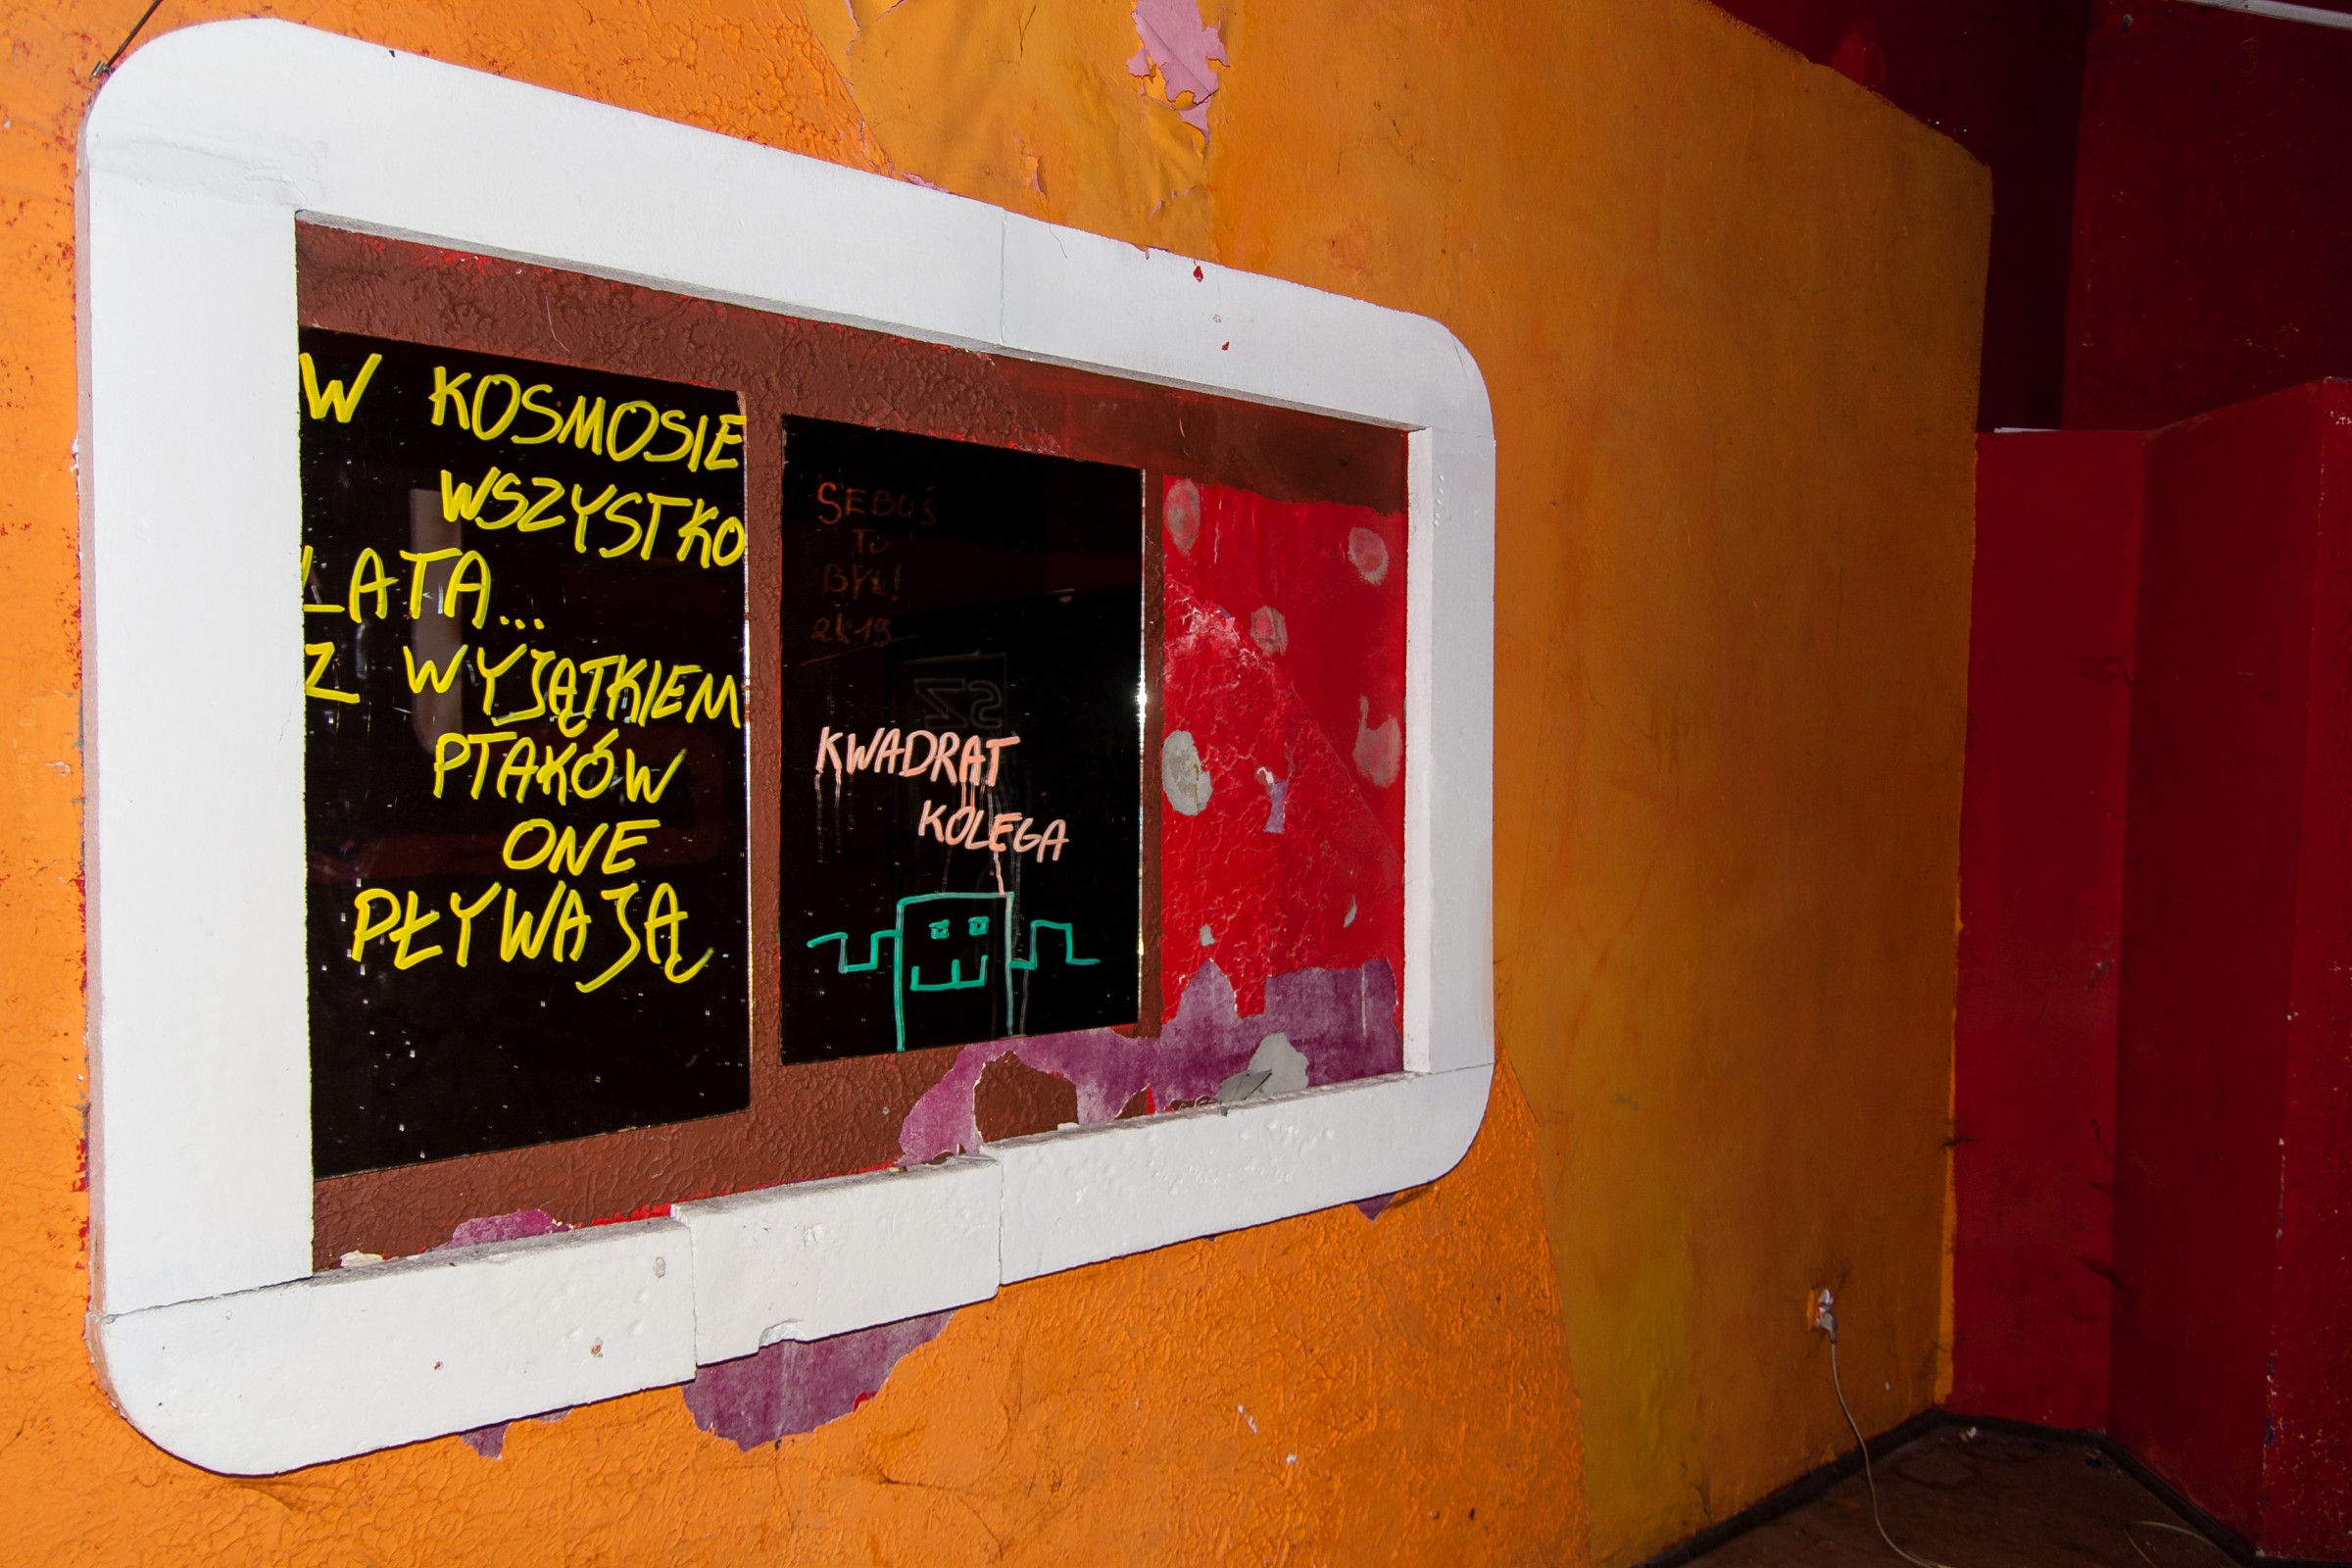 W KOSMOSIE
WSZYSTKO
LATA...
Z WYJĄTKIEM
PTAKÓW
ONE
PŁYWAJĄ
SEBUŚ
TU
BYŁ!
2k19
KWADRAT
KOLEGA